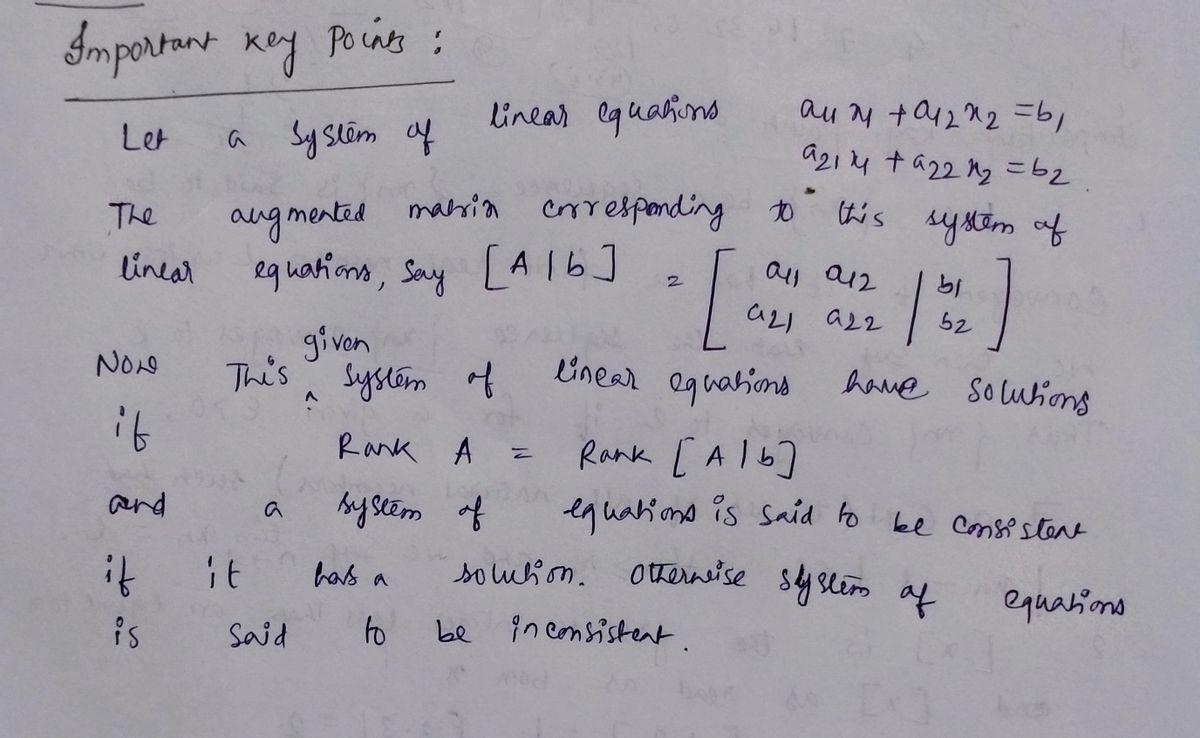 Important key Points :
Let a system of linear equations a11 x1 + a12 x2 = b1
a21 x1 + a22 x2 = b2.
The augmented matrix corresponding to this system of
linear equations, say [A | b] = [ a11 a12 | b1
a21 a22 | b2 ]
given
Now This ^ system of linear equations have solutions
if Rank A = Rank [A | b]
and a system of equations is said to be consistent
if it has a solution. Otherwise system of equations
is said to be inconsistent.